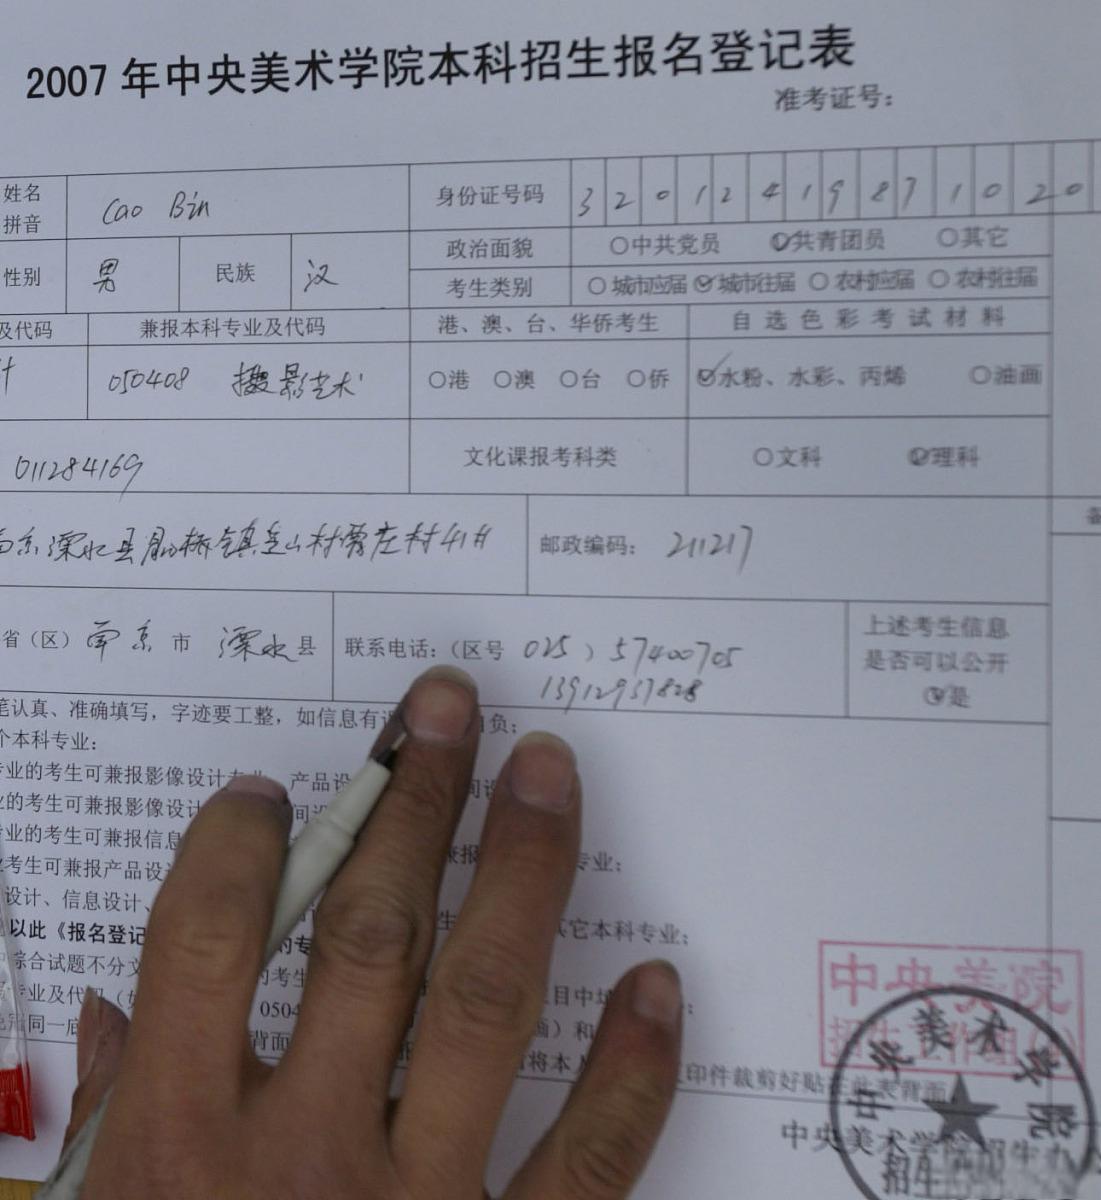 2007年中央美术学院本科招生报名登记表
准考证号:
姓名拼音 Cao Bin 身份证号码 3 2 0 1 2 4 1 9 8 7 1 0 2 0
性别 男 民族 汉 政治面貌 ○中共党员 ○共青团员 ○其它
考生类别 ○城市应届 ○城市往届 ○农村应届 ○农村往届
及代码 兼报本科专业及代码 港、澳、台、华侨考生 自选色彩考试材料
计 050408 摄影艺术 ○港 ○澳 ○台 ○侨 ○水粉、水彩、丙烯 ○油画
011284169 文化课报考科类 ○文科 ○理科
南京溧水县 镇 山村 庄村41号 邮政编码: 211217
省(区)南京市 溧水县 联系电话:(区号 025)57400705
13912937828
上述考生信息
是否可以公开
○是
笔认真、准确填写,字迹要工整,如信息有 自负;
个本科专业:
专业的考生可兼报影像设计专业、产品设 间设
业的考生可兼报影像设计 间设
专业的考生可兼报信息 兼报 专业;
业考生可兼报产品设
设计、信息设计、 其它本科专业;
以此《报名登记 的专
综合试题不分文 的考生 目中填
专业及代码( 0504 画)和
背面 将本人 印件裁剪好贴在此表背面
中央美院
招生工作组
中央美术学院
招生
中央美术学院招生办